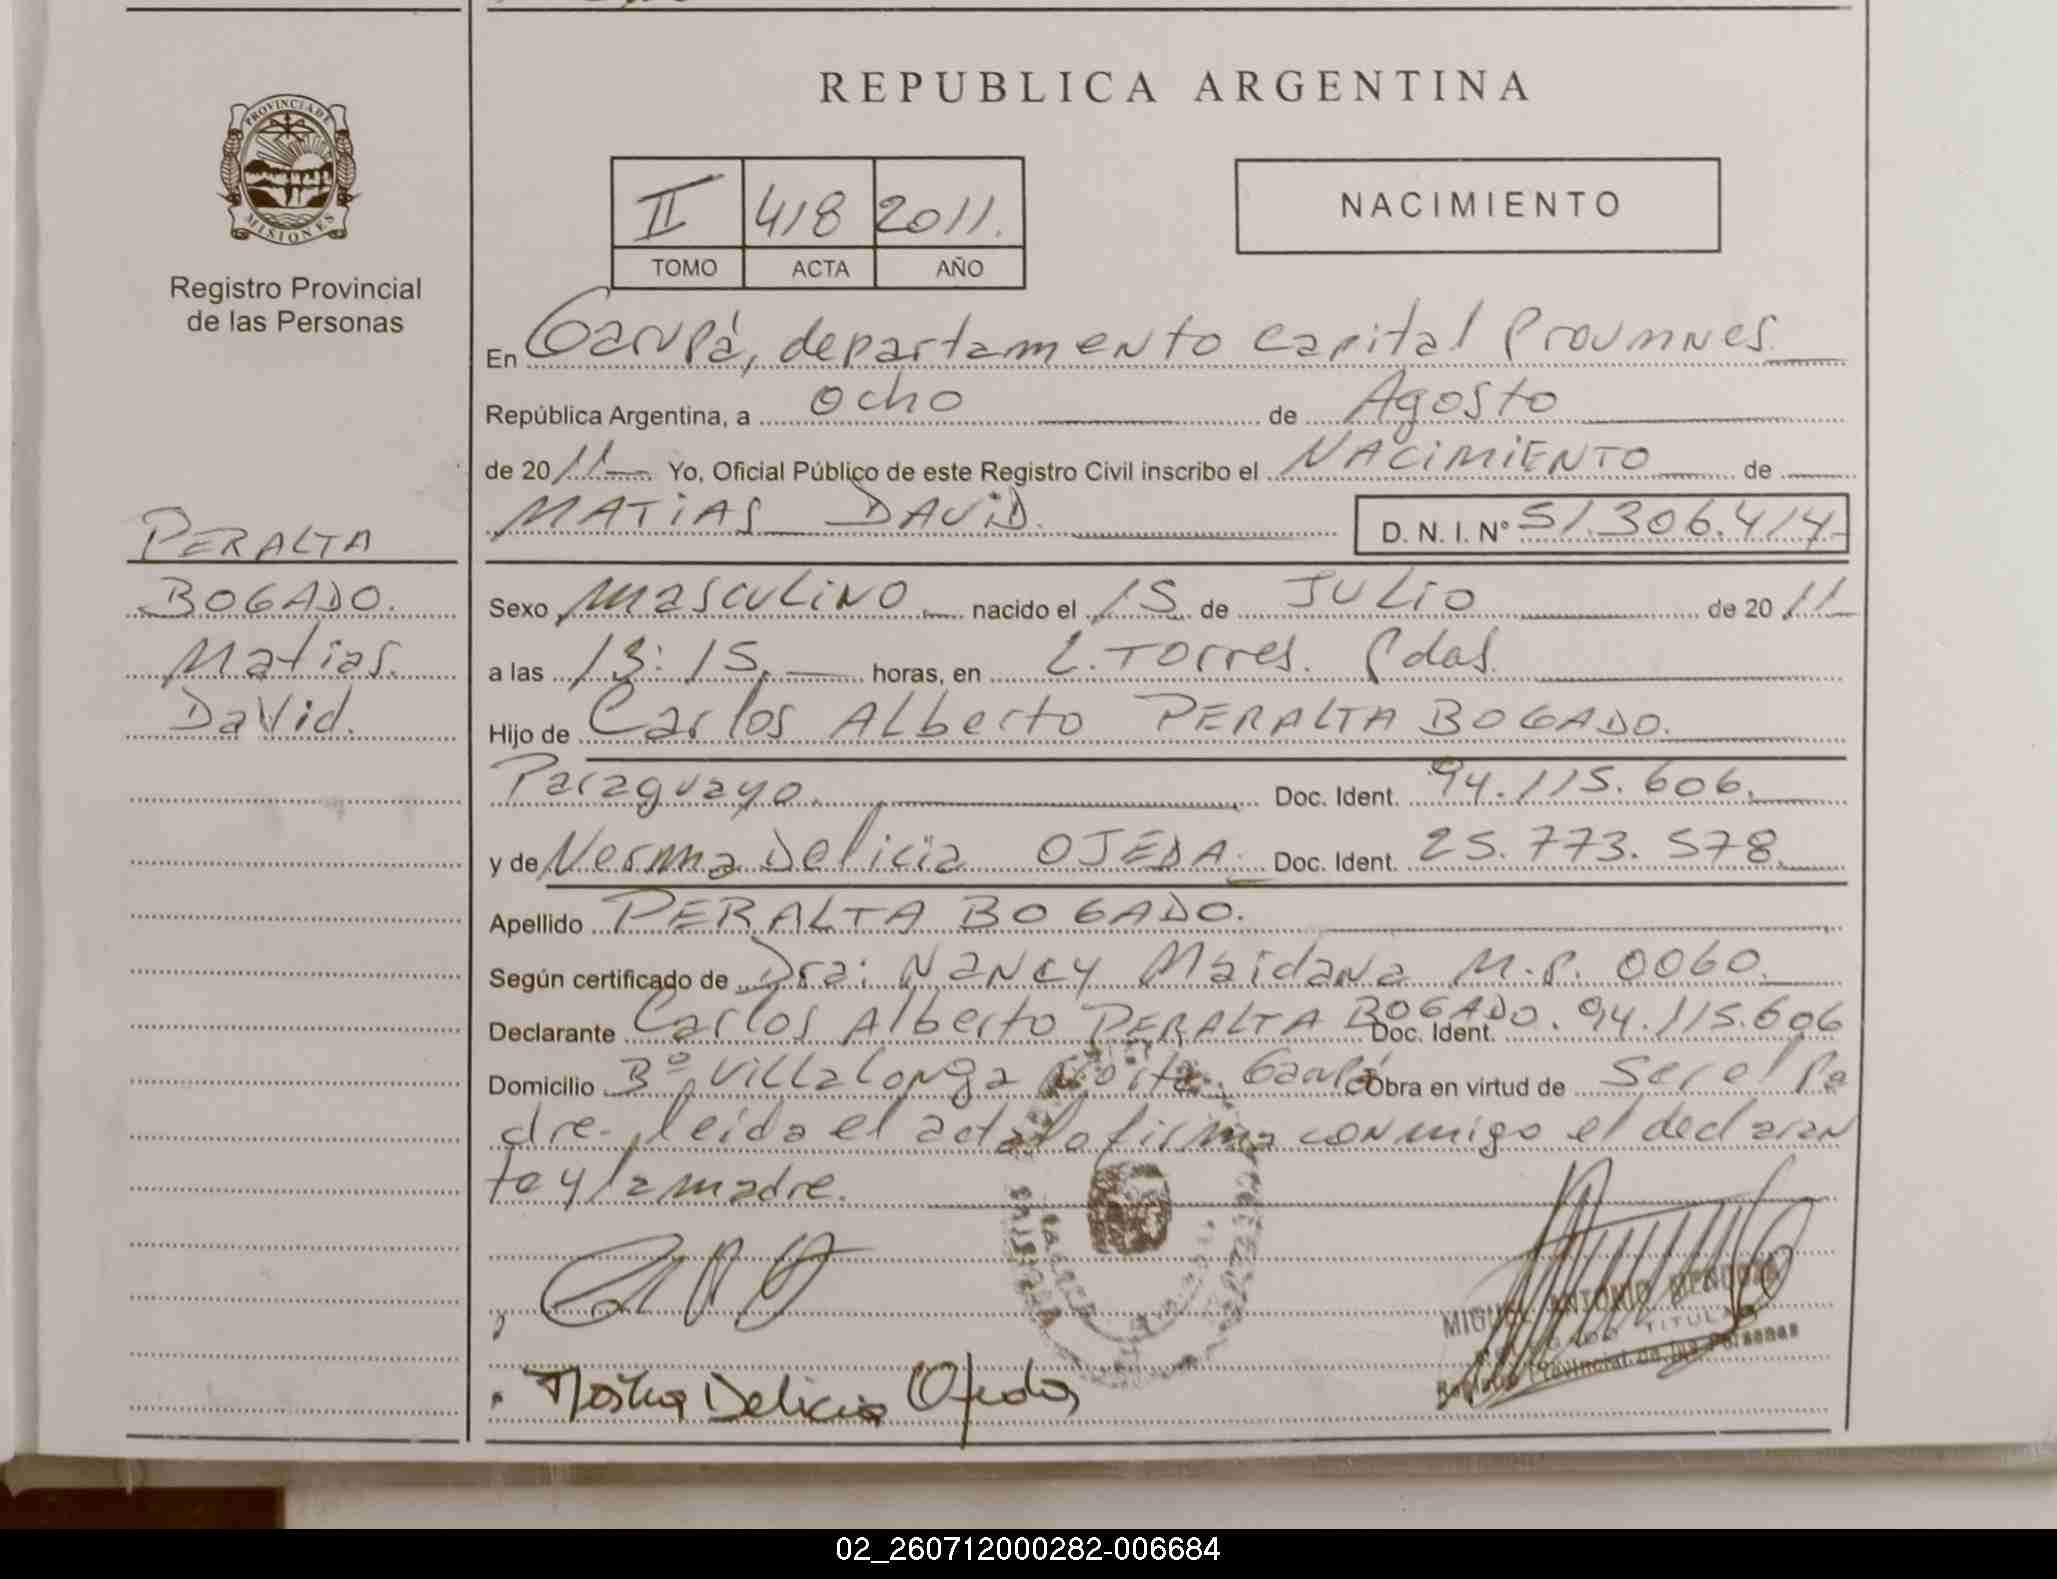 REPUBLICA ARGENTINA
PROVINCIA DE
MISIONES
Registro Provincial
de las Personas
II 418 2011.
TOMO ACTA AÑO
NACIMIENTO
En Garupá, departamento Capital
República Argentina, a ocho de Agosto
de 2011 Yo, Oficial Público de este Registro Civil inscribo el NACIMIENTO de
MATIAS DAVID. D. N. I. Nº 51.306.414
PERALTA
BOGADO.
Matias.
David.
Sexo masculino nacido el 15 de JULIO de 2011
a las 13:15 horas, en L. Torres. Pdas.
Hijo de Carlos Alberto PERALTA BOGADO.
Paraguayo. Doc. Ident. 94.115.606.
y de Norma Delicia OJEDA. Doc. Ident. 25.773.578
Apellido PERALTA BOGADO.
Según certificado de Dra: NANCY Maidana M.P. 0060.
Declarante Carlos Alberto PERALTA BOGADO. Doc. Ident. 94.115.606
Domicilio Bº Villalonga Garupá Obra en virtud de ser el Pa
dre. leida el acta la firma conmigo el declaran
te y la madre.
Norma Delicia Ojeda
MIGUEL ANTONIO MENDOZA
DELEGADO TITULAR
Registro Provincial de las Personas
02_260712000282-006684